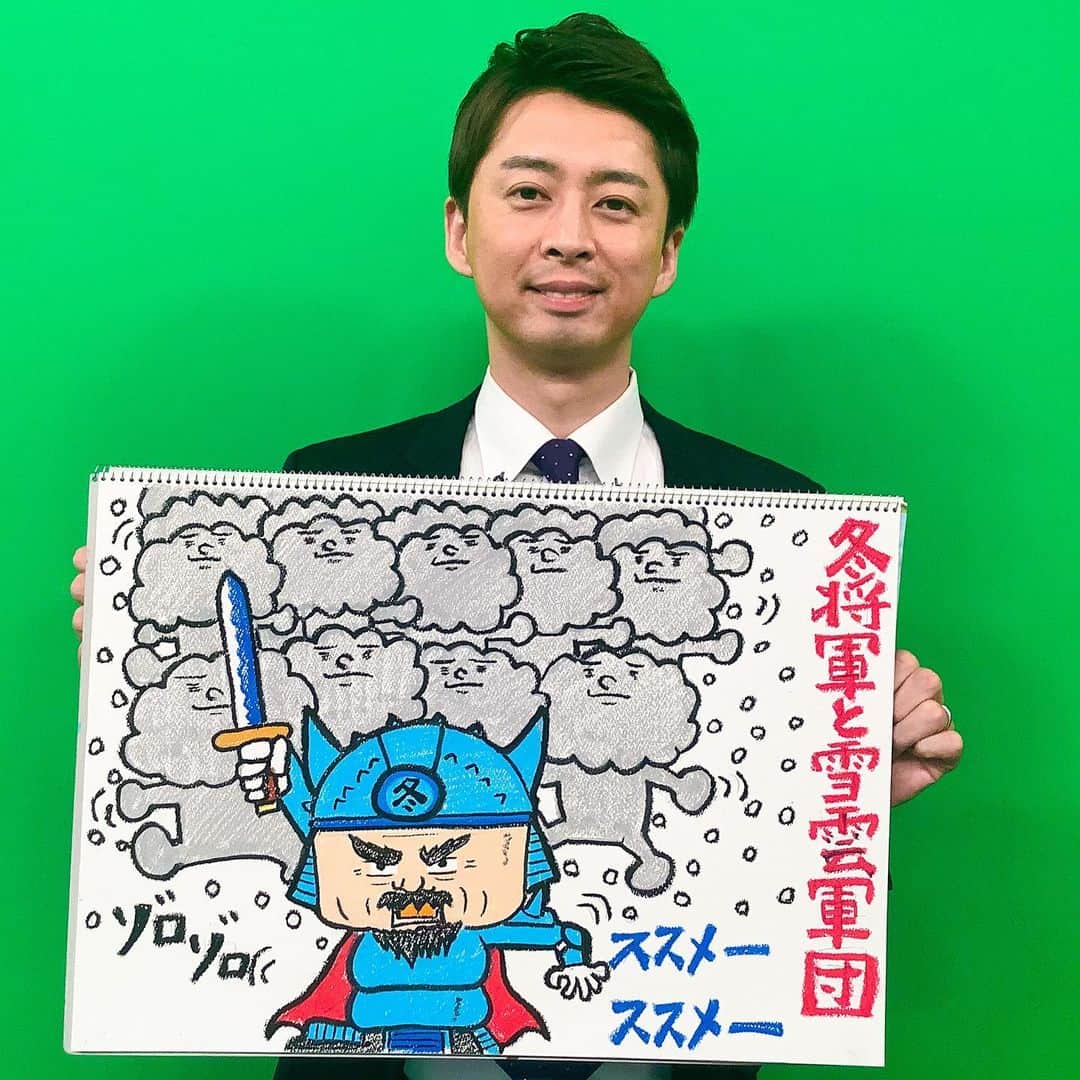 冬将軍と雪雲軍団
冬
ゾロゾロ
ススメー
ススメー